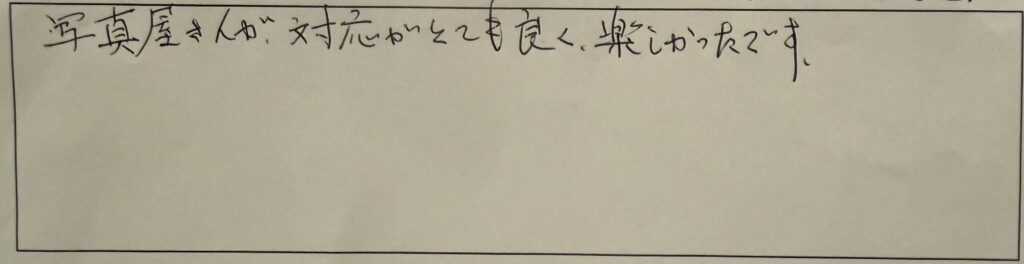 写真屋さんが、対応がとても良く、楽しかったです。